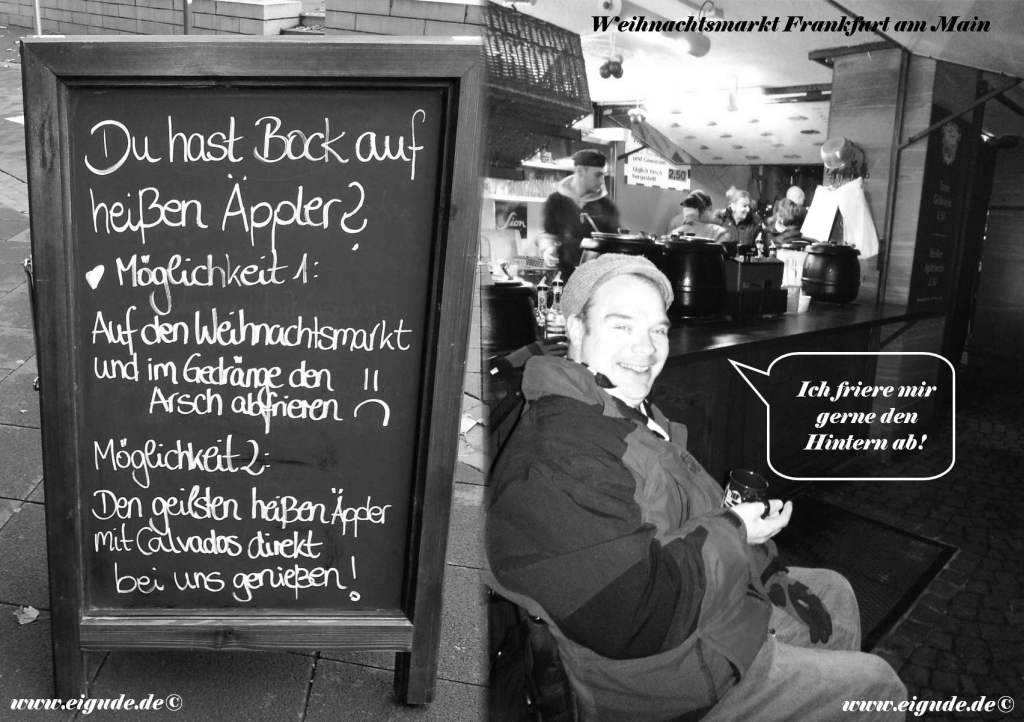 Du hast Bock auf
heißen Äppler?
♥ Möglichkeit 1:
Auf den Weihnachtsmarkt
und im Gedränge den
Arsch abfrieren
Möglichkeit 2:
Den geilsten heißen Äppler
mit Calvados direkt
bei uns genießen!
www.eigude.de©
Weihnachtsmarkt Frankfurt am Main
2,50
Ich friere mir
gerne den
Hintern ab!
www.eigude.de©